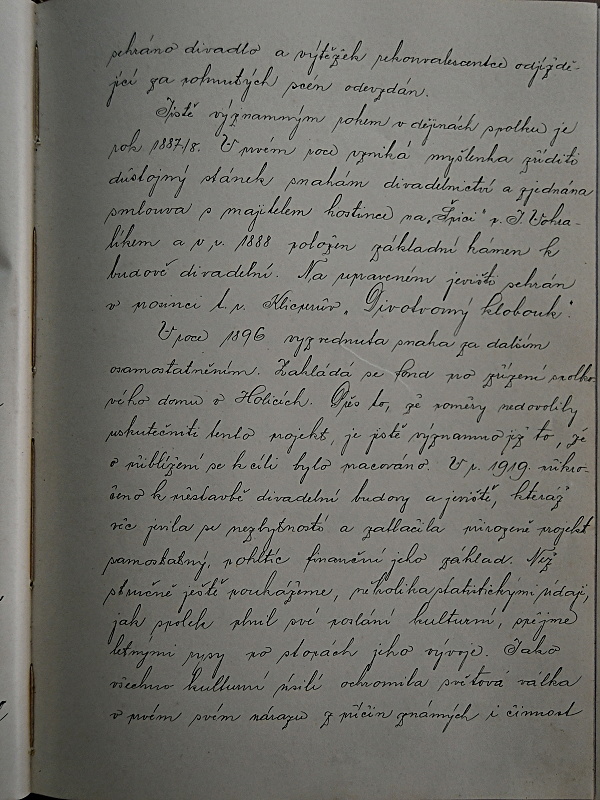 sehráno divadlo a výtěžek rekonvalescentce odjíždě-
jící za rohnutých scén odevzdán.
Jistě významným rokem v dějinách spolku je
rok 1887/8. V prvém roce vzniká myšlenka zříditi
důstojný stánek snahám divadelnictví a zjednána
smlouva s majitelem hostince na „Špici" p. J. Vohra-
líkem a v r. 1888 položen základní kámen k
budově divadelní. Na upraveném jevišti sehrán
v prosinci t. r. Klicperův „Divotvorný klobouk".
V roce 1896 vyzvednuta snaha za dalším
osamostatněním. Zakládá se fond pro zřízení spolko-
vého domu v Holicích. Přes to, že poměry nedovolily
uskutečniti tento projekt, je jistě významno již to, že
o přiblížení se k cíli bylo pracováno. V r. 1919. přikro-
čeno k přestavbě divadelní budovy a jeviště, kteráž
věc jevila se nezbytností a zatlačila přirozeně projekt
samostatný, pohltíc finanční jeho základ. Než
stručně ještě poukážeme, několika statistickými údaji,
jak spolek plnil své poslání kulturní, spějme
letmými rysy po stopách jeho vývoje. Jako
všechno kulturní úsilí ochromila světová válka
v prvém svém nárazu z příčin známých i činnost